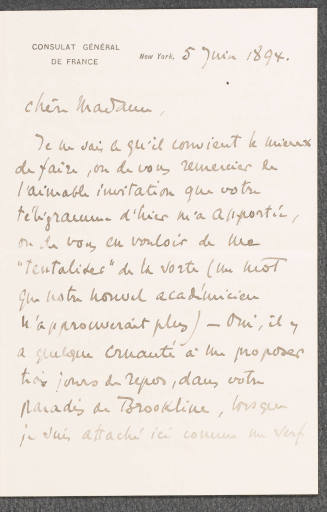 CONSULAT GÉNÉRAL
DE FRANCE
New York, 5 Juin 1894.
Chère Madame,
Je ne sais ce qu'il convient le mieux
de faire, ou de vous remercier de
l'aimable invitation que votre
télégramme d'hier m'a apportée,
ou de vous en vouloir de me
"tentaliser" de la sorte (un mot
que notre nouvel académicien
n'approuverait plus) — Oui, il y
a quelque cruauté à me proposer
trois jours de repos, dans votre
paradis de Brookline, lorsque
je suis attaché ici comme un serf